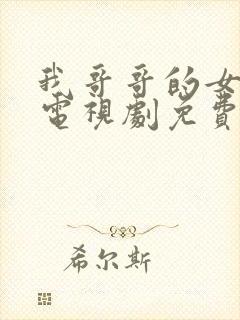 我哥哥的女
電視劇免費
希尔斯